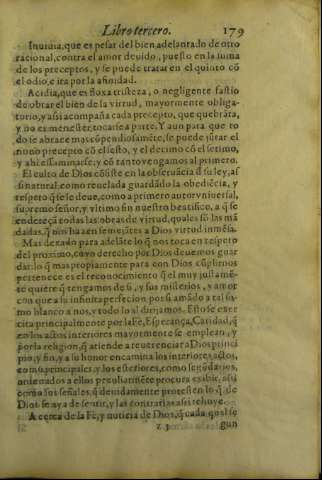 Libro tercero. 179
Inuidia, que es pesar del bien adelantado de otro
racional, contra el amor deuido, puesto en la suma
de los preceptos, y se puede tratar en el quinto cõ
el odio, e ira por la afinidad.
Acidia, que es floxa tristeza, o negligente fastio
de obrar el bien de la virtud, mayormente obliga-
torio, y assi acompaña cada precepto, que quebrãta,
y no es menester, tocarle a parte. Y aun para que to
do se abrace mas cõpendiosamẽte, se puede jũtar el
nono precepto cõ el sesto, y el decimo cõ el setimo,
y ahi essaminarse, y cõ tanto vengamos al primero.
El culto de Dios cõsiste en la obseruãcia d̃ su ley, as
si natural como reuelada guardãdo la obediẽcia, y
respeto q̃ se le deue, como a primero autor vniuersal,
supremo señor, y vltimo fin nuestro beatifico, a q̃ se
endereçã todas las obras de virtud, quales sõ las mã
dadas, q̃ nos hazen semejãtes a Dios virtud inmẽsa.
Mas dexado para adelãte lo q̃ nos toca en respeto
del proximo, cuyo derecho por Dios deuemos guar
dar: lo q̃ mas propiamente para con Dios cũplirnos
pertenece es el reconocimiento q̃ el muy justamẽ-
te quiere q̃ tengamos de si, y sus misterios, y amor
con que a su infinita perfecion por si amãdo a tal su-
mo blanco a nos, y todo lo al dirijamos. Esto se exer
cita principalmente por la Fe, Esperança, Caridad, q̃
en los actos interiores mayormente se emplean, y
por la religion, q̃ atiende a reuerenciar a Dios princi
pio, y fin, y a su honor encamina los interiores actos,
como principales, y los esteriores, como segũdarios,
ordenados a ellos peculiarmẽte procura exibir, assi
como sus señales, q̃ deuidamente protesten lo q̃ de
Dios se aya de sentir, y las contrarias assi rehuye.
Acerca de la Fe, y noticia de Dios, q̃ cada qual se
z 3 gun